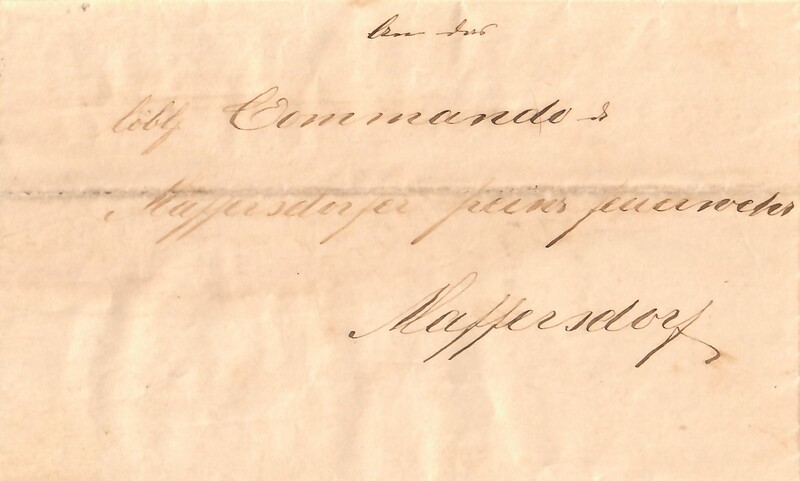 An das
löbl Commando d
Maffersdorfer freiw feuerwehr
Maffersdorf